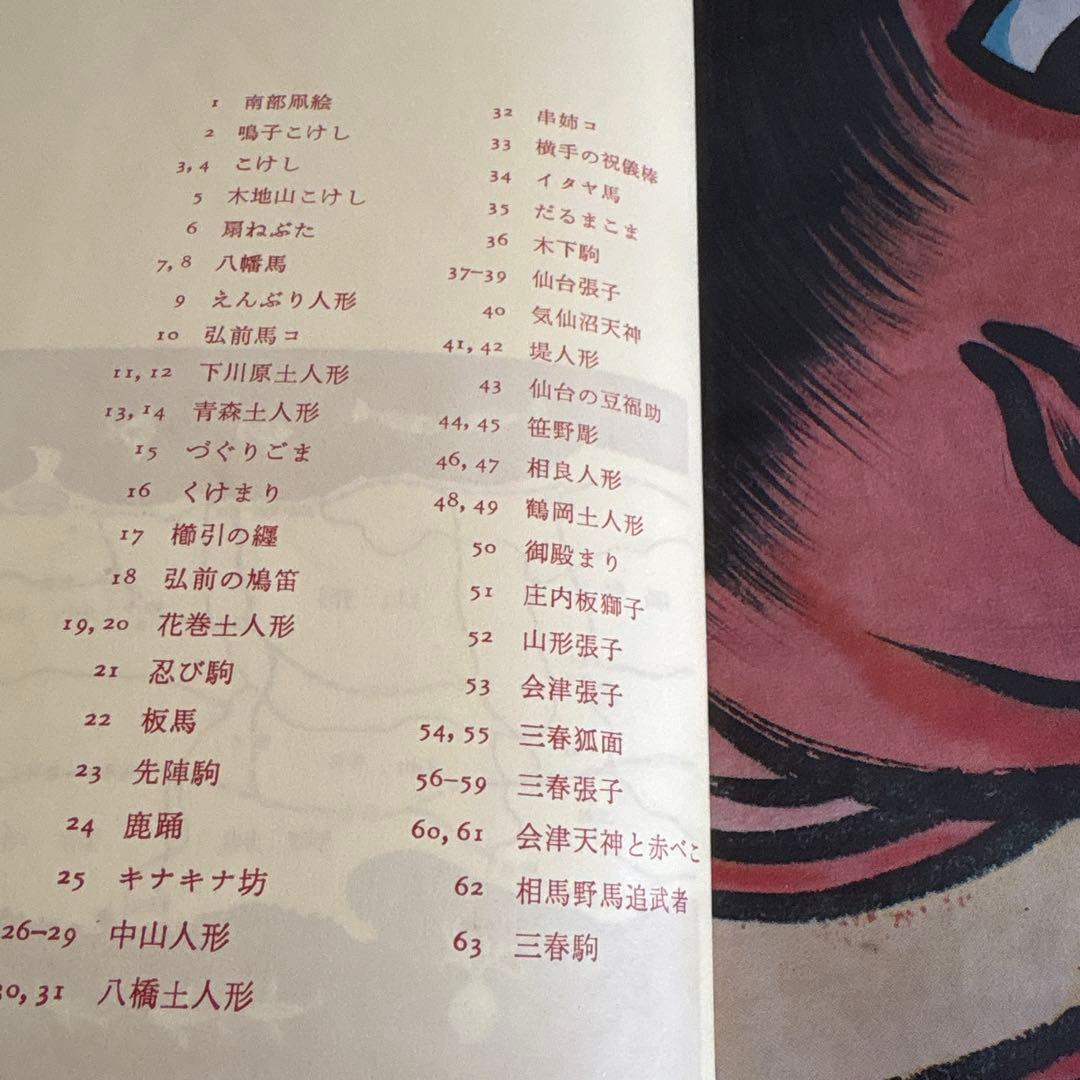 1 南部凧絵
2 鳴子こけし
3, 4 こけし
5 木地山こけし
6 扇ねぶた
7, 8 八幡馬
9 えんぶり人形
10 弘前馬コ
11, 12 下川原土人形
13, 14 青森土人形
15 づぐりごま
16 くけまり
17 櫛引の纒
18 弘前の鳩笛
19, 20 花巻土人形
21 忍び駒
22 板馬
23 先陣駒
24 鹿踊
25 キナキナ坊
26–29 中山人形
30, 31 八橋土人形
32 串姉コ
33 横手の祝儀棒
34 イタヤ馬
35 だるまこま
36 木下駒
37–39 仙台張子
40 気仙沼天神
41, 42 堤人形
43 仙台の豆福助
44, 45 笹野彫
46, 47 相良人形
48, 49 鶴岡土人形
50 御殿まり
51 庄内板獅子
52 山形張子
53 会津張子
54, 55 三春狐面
56–59 三春張子
60, 61 会津天神と赤べこ
62 相馬野馬追武者
63 三春駒